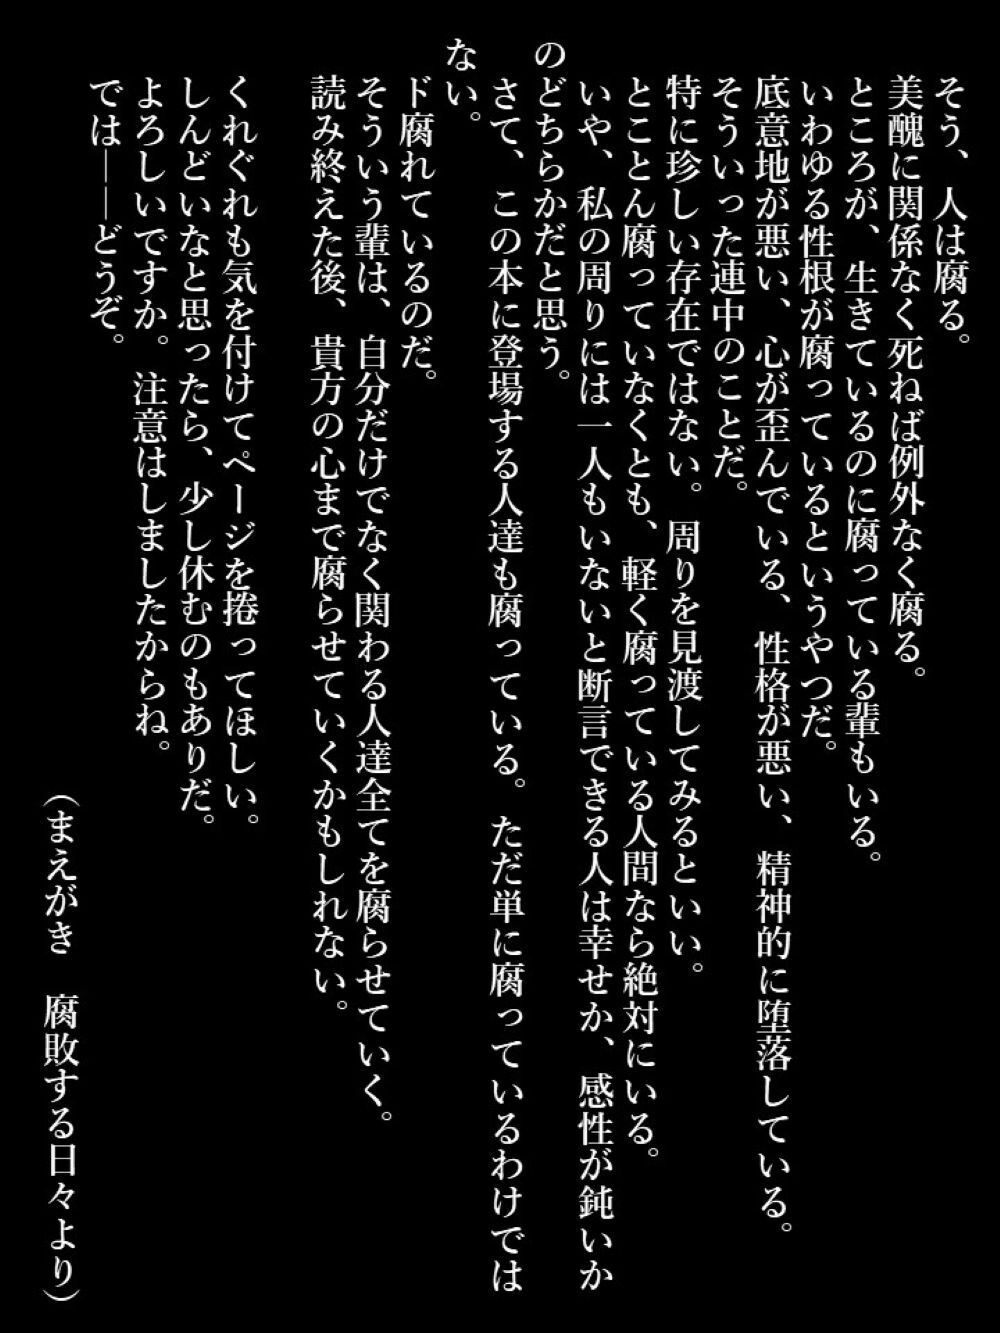 そう、人は腐る。
美醜に関係なく死ねば例外なく腐る。
ところが、生きているのに腐っている輩もいる。
いわゆる性根が腐っているというやつだ。
底意地が悪い、心が歪んでいる、性格が悪い、精神的に堕落している。
そういった連中のことだ。
特に珍しい存在ではない。周りを見渡してみるといい。
とことん腐っていなくとも、軽く腐っている人間なら絶対にいる。
いや、私の周りには一人もいないと断言できる人は幸せか、感性が鈍いか
のどちらかだと思う。
さて、この本に登場する人達も腐っている。ただ単に腐っているわけでは
ない。
ド腐れているのだ。
そういう輩は、自分だけでなく関わる人達全てを腐らせていく。
読み終えた後、貴方の心まで腐らせていくかもしれない。
くれぐれも気を付けてページを捲ってほしい。
しんどいなと思ったら、少し休むのもありだ。
よろしいですか。注意はしましたからね。
では――どうぞ。
（まえがき　腐敗する日々より）